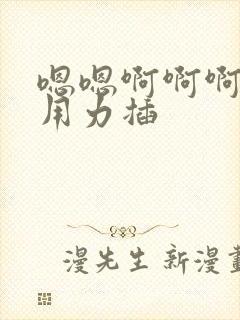 嗯嗯啊啊啊
用力插
漫先生 新漫畫